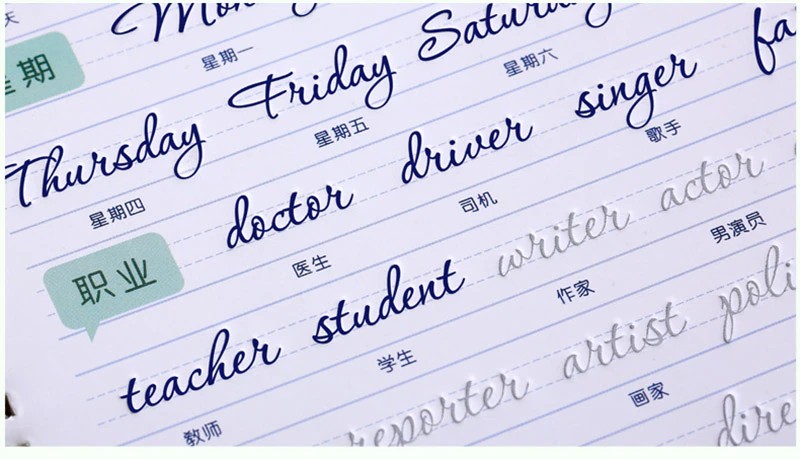 天
星期一
星期六
星期
Thursday Friday
星期四 星期五
职业
doctor driver singer
医生 司机 歌手
teacher student writer actor
教师 学生 作家 男演员
reporter artist
画家